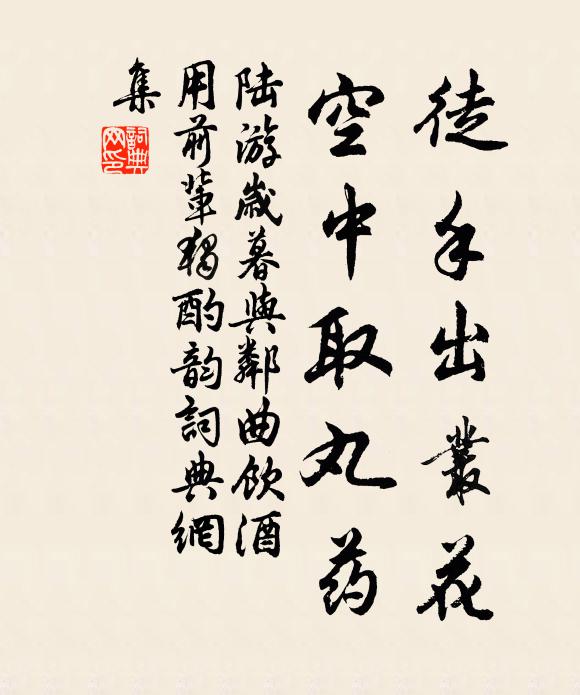 徒手出叢花
空中取丸药
陆游歲暮與鄰曲飲酒
用前輩獨酌韵詞典網
集
詞典
网印